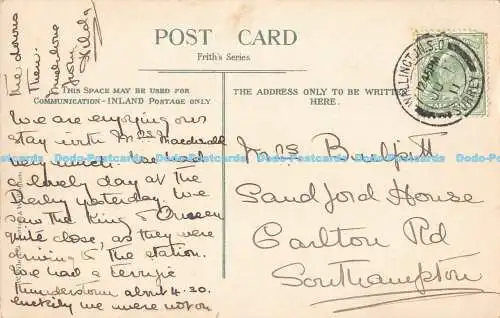 POST CARD
Frith's Series
THIS SPACE MAY BE USED FOR
COMMUNICATION—INLAND POSTAGE ONLY
THE ADDRESS ONLY TO BE WRITTEN
HERE.
We are enjoying our
stay with Mrs Macdonald
very much. We had
a lovely day at the
Derby yesterday. We
saw the King & Queen
quite close, as they were
driving to the station.
We had a terrific
thunderstorm about 4.30.
luckily we were not on
the downs
then.
Much love
from
Hilda
Mrs
Sandford House
Carlton Rd
Southampton
WALLINGTON S.O
SURREY
Dodo-Postcards